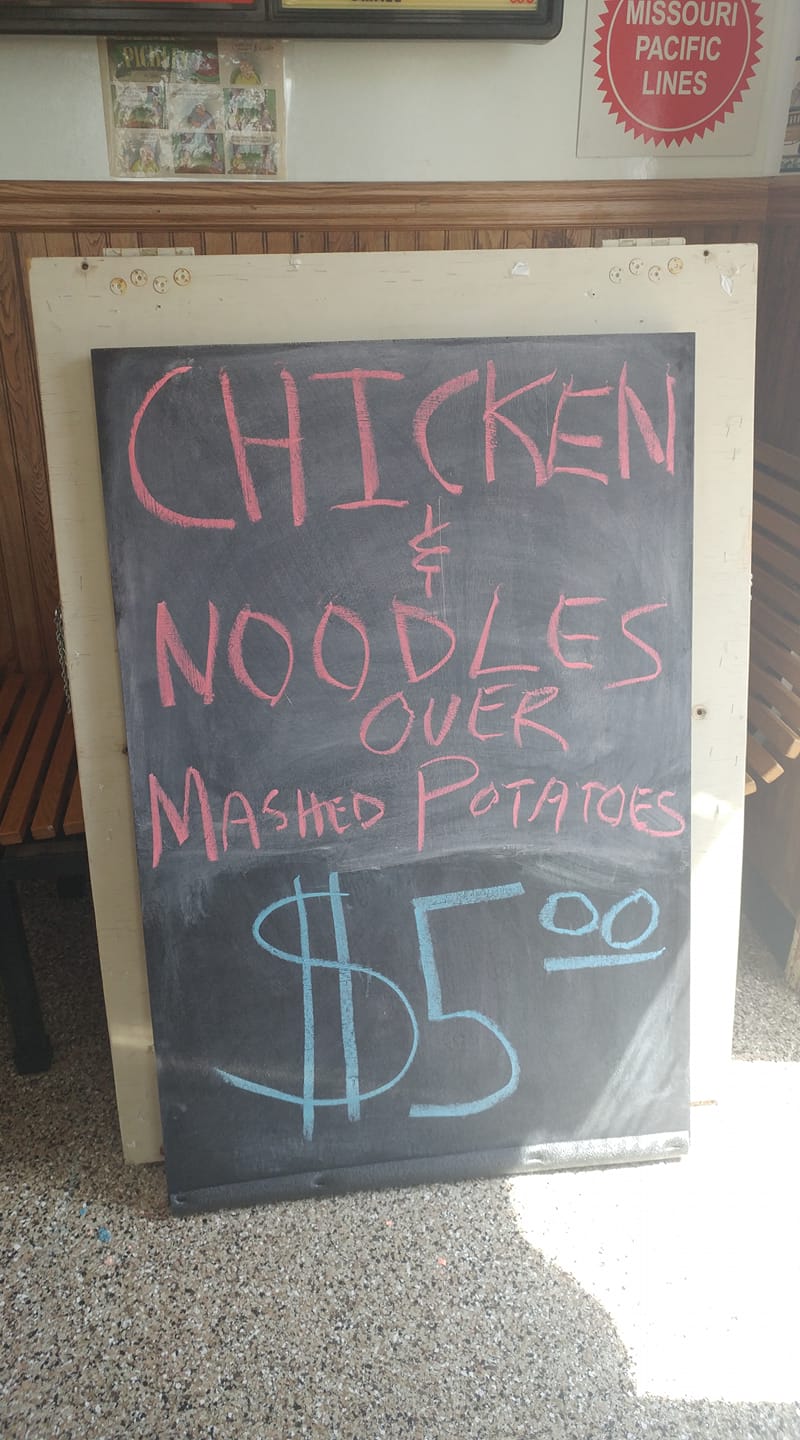 MISSOURI
PACIFIC
LINES
CHICKEN
&
NOODLES
OVER
MASHED POTATOES
$5.00